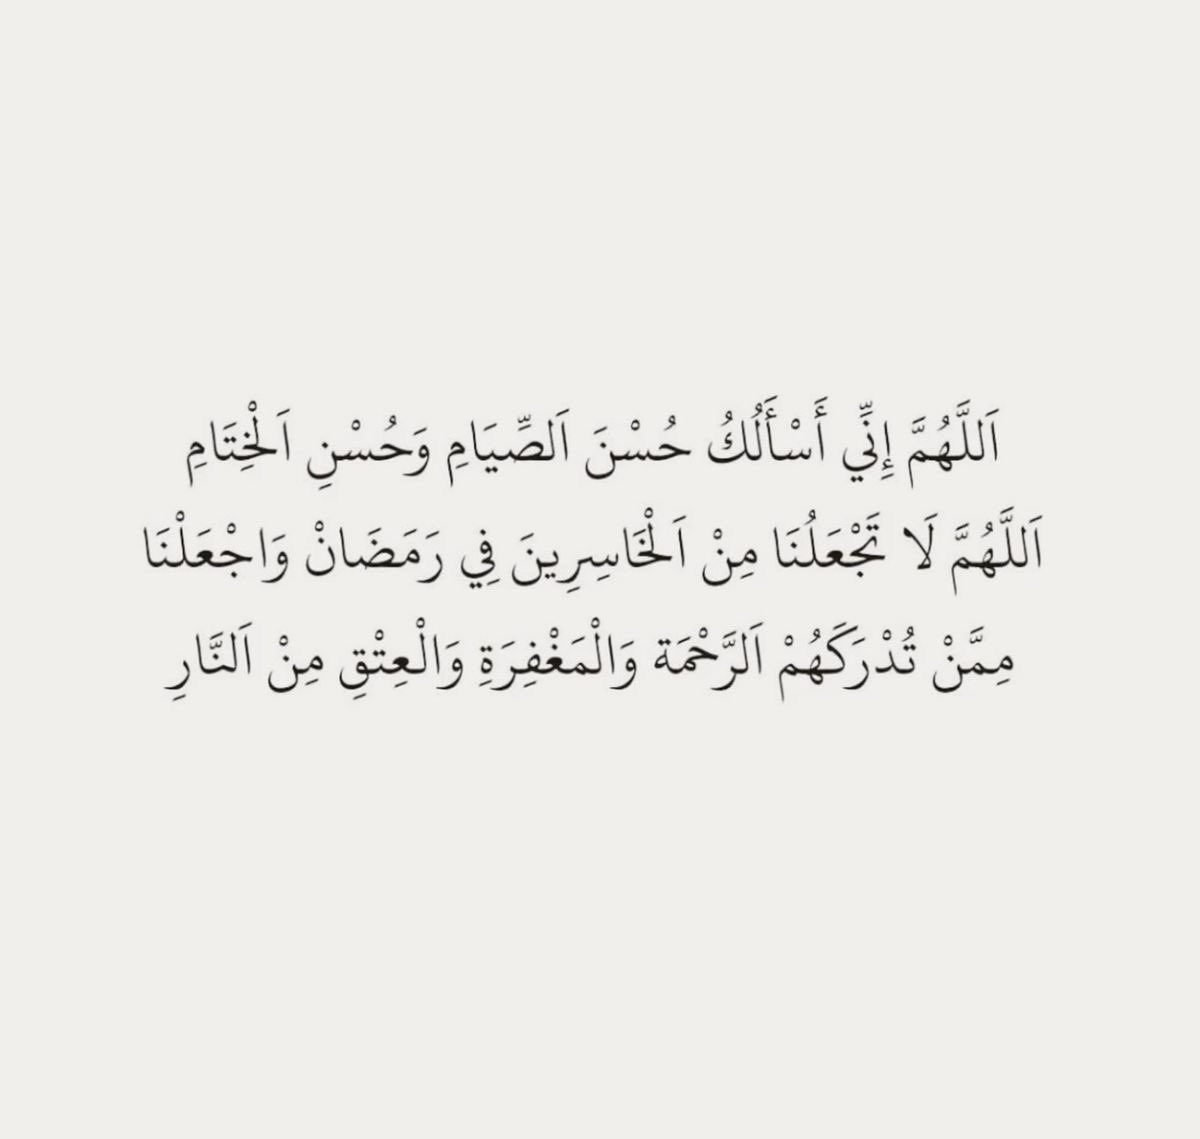 اَللَّهُمَّ إِنِّي أَسْأَلُكُ حُسْنَ اَلصِّيَامِ وَحُسْنِ اَلْخِتَامِ
اَللَّهُمَّ لَا تَجْعَلُنَا مِنْ اَلْخَاسِرِينَ فِي رَمَضَانْ وَاجْعَلْنَا
مِمَّنْ تُدْرَكَهُمْ اَلرَّحْمَة وَالْمَغْفِرَةِ وَالْعِتْقِ مِنْ اَلنَّارِ